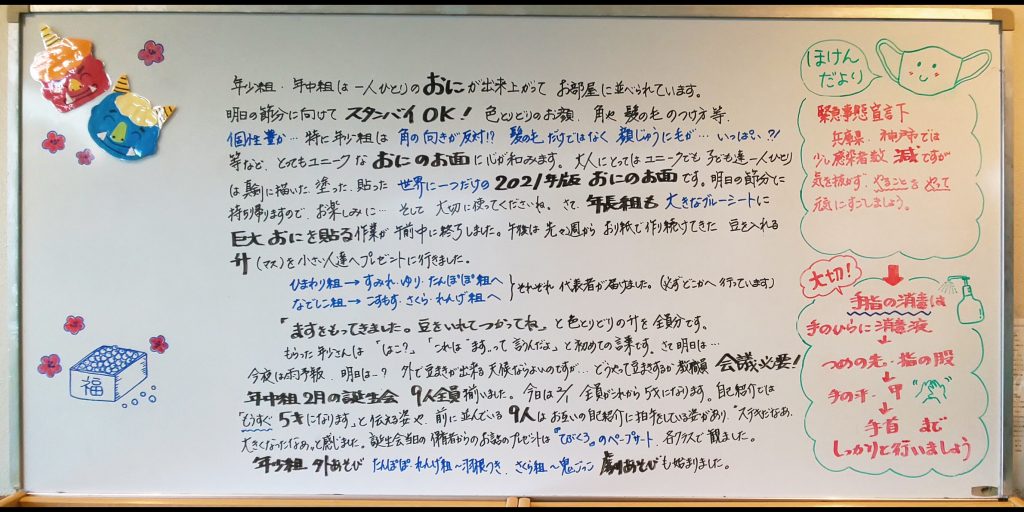 年少組・年中組は一人ひとりのおにが出来上がって お部屋に並べられています。
明日の節分に向けて スタンバイOK! 色とりどりのお顔、角や髪の毛のつけ方等、
個性豊か… 特に年少組は 角の向きが反対!? 髪の毛だけではなく 顔じゅうに毛が… いっぱい?!
等など、とってもユニークな おにのお面に心が和みます。大人にとってはユニークでも 子ども達一人ひとり
は真剣に描いた、塗った、貼った 世界に一つだけの 2021年版 おにのお面です。明日の節分で
持ち帰りますので、お楽しみに… そして 大切に使ってくださいね。さて、年長組も 大きなブルーシートに
巨大 おにを貼る作業が 午前中に終了しました。午後は 先々週から おり紙で作り続けてきた 豆を入れる
升(マス)を小さい人達へプレゼントに行きました。
ひまわり組→すみれ・ゆり・たんぽぽ組へ
なでしこ組→こすもす・さくら・れんげ組へ
それぞれ 代表者が届けました。(必ずどこかへ行っています)
「ますをもってきました。豆をいれてつかってね」と色とりどりの升を全員分です。
もらった年少さんは「はこ?」「これは“ます”って言うんだよ」と初めての言葉です。さて明日は…
今夜は雨予報、明日は…? 外で豆まきが出来る天候ならよいのですが… どうやって豆まきするか 教職員 会議必要!
年中組2月の誕生会 9人全員揃いました。今日は2/1 全員がこれから5才になります。自己紹介では
「もうすぐ5才になります。」と伝える姿や、前に並んでいる9人はお互いの自己紹介に拍手している姿があり、“ステキだなあ、
大きくなったなぁ”と感じました。誕生会当日の保育者からのお話のプレゼントは“てぶくろ”のペープサート、各クラスで観ました。
年少組 外あそび たんぽぽ れんげ組〜羽根つき、さくら組〜鬼ごっこ 劇あそびも始まりました。
福
ほけん
だより
緊急事態宣言下
兵庫県・神戸では
少し感染者数 減ですが
気を抜かず、やることをやって
元気にすごしましょう。
大切!
手指の消毒は
手のひらに消毒液
つめの先・指の股
手の平・甲
手首 まで
しっかりと行いましょう